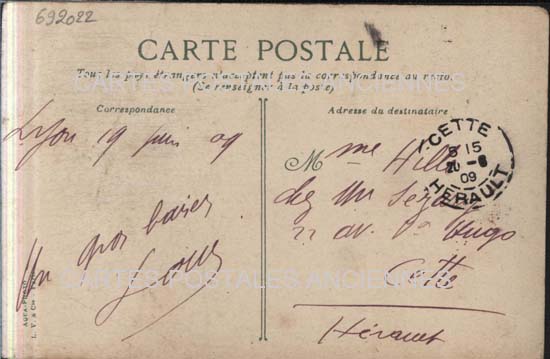 692022
CARTE POSTALE
Tous les pays étrangers n'acceptent pas la correspondance au verso.
(Se renseigner à la poste)
CARTES POSTALES ANCIENNES
Correspondance
Adresse du destinataire
Lyon 19 juin 09
Un gros baiser
Mme
chez Mr
22 av. Vor Hugo
Cette
Hérault
CETTE
5 15
20 -6
09
HERAULT
CARTES POSTALES ANCIENNES
AQUA-PHOTO
L. V. & Cie